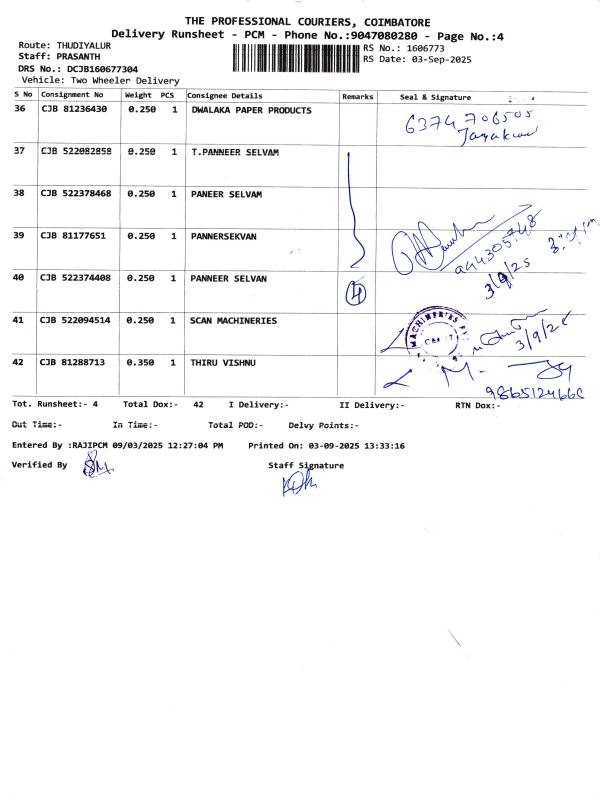 THE PROFESSIONAL COURIERS, COIMBATORE
Delivery Runsheet - PCM - Phone No.:9047080280 - Page No.:4
Route: THUDIYALUR
RS No.: 1606773
Staff: PRASANTH
RS Date: 03-Sep-2025
DRS No.: DCJB160677304
Vehicle: Two Wheeler Delivery
S No Consignment No Weight PCS Consignee Details Remarks Seal & Signature
36 CJB 81236430 0.250 1 DWALAKA PAPER PRODUCTS
6374706505
37 CJB 522082858 0.250 1 T.PANNEER SELVAM
38 CJB 522378468 0.250 1 PANEER SELVAM
39 CJB 81177651 0.250 1 PANNERSEKVAN
40 CJB 522374408 0.250 1 PANNEER SELVAN
4
3/9/25
41 CJB 522094514 0.250 1 SCAN MACHINERIES
MACHINERIES
3/9/25
42 CJB 81288713 0.350 1 THIRU VISHNU
Tot. Runsheet:- 4 Total Dox:- 42 I Delivery:- II Delivery:- RTN Dox:-
Out Time:- In Time:- Total POD:- Delvy Points:-
Entered By :RAJIPCM 09/03/2025 12:27:04 PM Printed On: 03-09-2025 13:33:16
Verified By Staff Signature